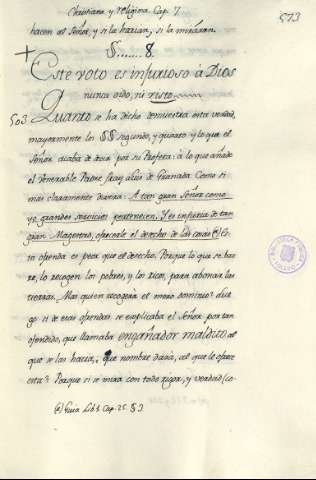 Christiana y Religiosa Cap. 7
573
hacen al Señor, y si la harian, si la miraran.
§......8.
Este voto es injurioso à Dios
nunca oido, ni visto
503. Quanto se ha dicho demuestra esta verdad,
mayormente los §§ segundo, y quarto y lo que el
Señor acaba de decir por su Profeta: à lo que añade
el Venerable Padre fray Luis de Granada. Como si
mas claramente dixera: A tan gran Señor como
yo grandes servicios pertenecen. Y es injuria de tan
gran Magestad, ofrecerle el desecho de las cosas (a) Es
ta ofrenda es peor que el desecho. Porque lo que se bar
re, lo recogen los pobres, y los ricos, para abonar las
tierras. Mas quien recogerá el mero dominio? Lue
go si de esas ofrendas se explicaba el Señor por tan
ofendido, que llamaba engañador maldito al
que se las hacia, que nombre daria, al que le ofrece
esta? Porque si se mira con todo rigor, y verdad (co-
(a) Guia Lib. 1. Cap. 25. § 3.